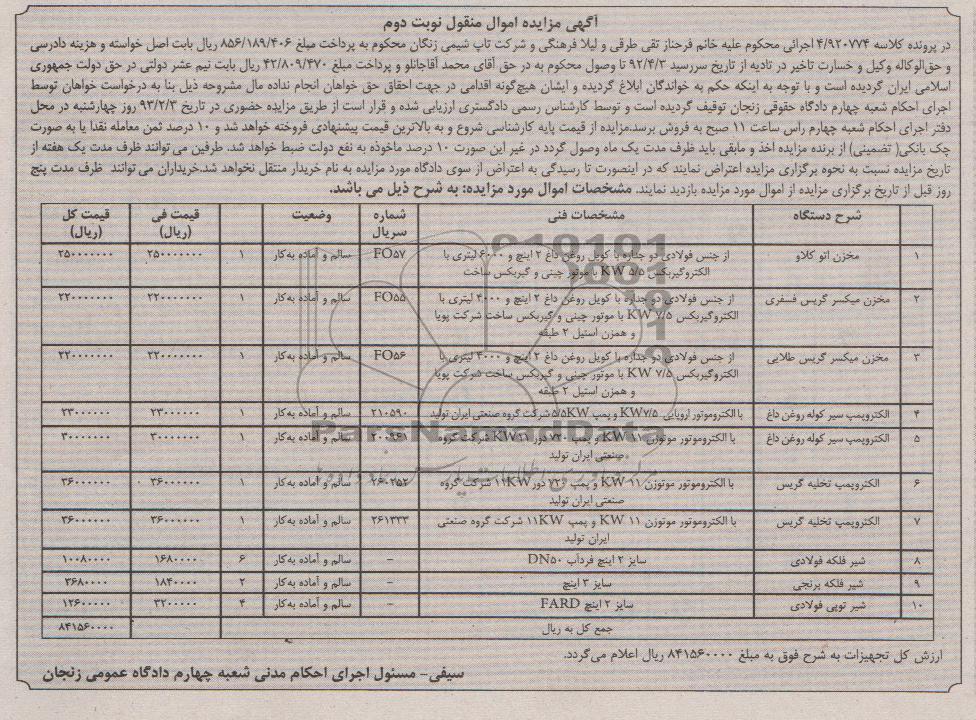 آگهی مزایده اموال منقول نوبت دوم
در پرونده کلاسه ۴/۹۲۰۷۷۴ اجرائی محکوم علیه خانم فرحناز تقی طرقی و لیلا فرهنگی و شرکت تاپ شیمی زنگان محکوم به پرداخت مبلغ ۸۵۶/۱۸۹/۴۰۶ ریال بابت اصل خواسته و هزینه دادرسی
و حق‌الوکاله وکیل و خسارت تاخیر در تادیه از تاریخ سررسید ۹۲/۴/۳ تا وصول محکوم به در حق آقای محمد آقاجانلو و پرداخت مبلغ ۴۲/۸۰۹/۴۷۰ ریال بابت نیم عشر دولتی در حق دولت جمهوری
اسلامی ایران گردیده است و با توجه به اینکه حکم به خواندگان ابلاغ گردیده و ایشان هیچ‌گونه اقدامی در جهت احقاق حق خواهان انجام نداده مال مشروحه ذیل بنا به درخواست خواهان توسط
اجرای احکام شعبه چهارم دادگاه حقوقی زنجان توقیف گردیده است و توسط کارشناس رسمی دادگستری ارزیابی شده و قرار است از طریق مزایده حضوری در تاریخ ۹۳/۲/۳ روز چهارشنبه در محل
دفتر اجرای احکام شعبه چهارم راس ساعت ۱۱ صبح به فروش برسد.مزایده از قیمت پایه کارشناسی شروع و به بالاترین قیمت پیشنهادی فروخته خواهد شد و ۱۰ درصد ثمن معامله نقدا یا به صورت
چک بانکی( تضمینی) از برنده مزایده اخذ و مابقی باید ظرف مدت یک ماه وصول گردد در غیر این صورت ۱۰ درصد ماخوذه به نفع دولت ضبط خواهد شد. طرفین می توانند ظرف مدت یک هفته از
تاریخ مزایده نسبت به نحوه برگزاری مزایده اعتراض نمایند که در اینصورت تا رسیدگی به اعتراض از سوی دادگاه مورد مزایده به نام خریدار منتقل نخواهد شد.خریداران می توانند ظرف مدت پنج
روز قبل از تاریخ برگزاری مزایده از اموال مورد مزایده بازدید نمایند. مشخصات اموال مورد مزایده: به شرح ذیل می باشد.
شرح دستگاه مشخصات فنی شماره سریال وضعیت قیمت فی (ریال) قیمت کل (ریال)
۱ مخزن اتو کلاو از جنس فولادی دو جداره با کویل روغن داغ ۲ اینچ و ۶۰۰۰ لیتری با FO۵۷ سالم و آماده به‌کار ۱ ۲۵۰۰۰۰۰۰۰ ۲۵۰۰۰۰۰۰۰
الکتروگیربکس KW ۵/۵ با موتور چینی و گیربکس ساخت
۲ مخزن میکسر گریس فسفری از جنس فولادی دو جداره با کویل روغن داغ ۲ اینچ و ۴۰۰۰ لیتری با FO۵۵ سالم و آماده به‌کار ۱ ۲۲۰۰۰۰۰۰۰ ۲۲۰۰۰۰۰۰۰
الکتروگیربکس KW ۷/۵ با موتور چینی و گیربکس ساخت شرکت پویا
و همزن استیل ۲ طبقه
۳ مخزن میکسر گریس طلایی از جنس فولادی دو جداره با کویل روغن داغ ۲ اینچ و ۴۰۰۰ لیتری با FO۵۶ سالم و آماده به‌کار ۱ ۲۲۰۰۰۰۰۰۰ ۲۲۰۰۰۰۰۰۰
الکتروگیربکس KW ۷/۵ با موتور چینی و گیربکس ساخت شرکت پویا
و همزن استیل ۲ طبقه
۴ الکتروپمپ سیر کوله روغن داغ با الکتروموتور اروپایی KW۷/۵ و پمپ ۵/۵KW شرکت گروه صنعتی ایران تولید ۲۱۰۵۹۰ سالم و آماده به‌کار ۱ ۲۳۰۰۰۰۰۰ ۲۳۰۰۰۰۰۰
۵ الکتروپمپ سیر کوله روغن داغ با الکتروموتور موتوژن KW ۱۱ و پمپ ۷۲۰ دور KW۱۱ شرکت گروه سالم و آماده به‌کار ۱ ۳۰۰۰۰۰۰۰ ۳۰۰۰۰۰۰۰
صنعتی ایران تولید
۶ الکتروپمپ تخلیه گریس با الکتروموتور موتوژن KW ۱۱ و پمپ ۷۲۰ دور ۱۱KW شرکت گروه ۲۶۰۲۵۲ سالم و آماده به‌کار ۱ ۳۶۰۰۰۰۰۰ ۳۶۰۰۰۰۰۰
صنعتی ایران تولید
۷ الکتروپمپ تخلیه گریس با الکتروموتور موتوژن KW ۱۱ و پمپ ۱۱KW شرکت گروه صنعتی ۲۶۱۳۳۳ سالم و آماده به‌کار ۱ ۳۶۰۰۰۰۰۰ ۳۶۰۰۰۰۰۰
ایران تولید
۸ شیر فلکه فولادی سایز ۲ اینچ فردآب DN۵۰ – سالم و آماده به‌کار ۶ ۱۶۸۰۰۰۰ ۱۰۰۸۰۰۰۰
۹ شیر فلکه برنجی سایز ۳ اینچ – سالم و آماده به‌کار ۲ ۱۸۴۰۰۰۰ ۳۶۸۰۰۰۰
۱۰ شیر توپی فولادی سایز ۲ اینچ FARD – سالم و آماده به‌کار ۴ ۳۲۰۰۰۰۰ ۱۲۶۰۰۰۰۰
جمع کل به ریال ۸۴۱۵۶۰۰۰۰
ارزش کل تجهیزات به شرح فوق به مبلغ ۸۴۱۵۶۰۰۰۰ ریال اعلام می‌گردد.
سیفی– مسئول اجرای احکام مدنی شعبه چهارم دادگاه عمومی زنجان
ParsNamadData